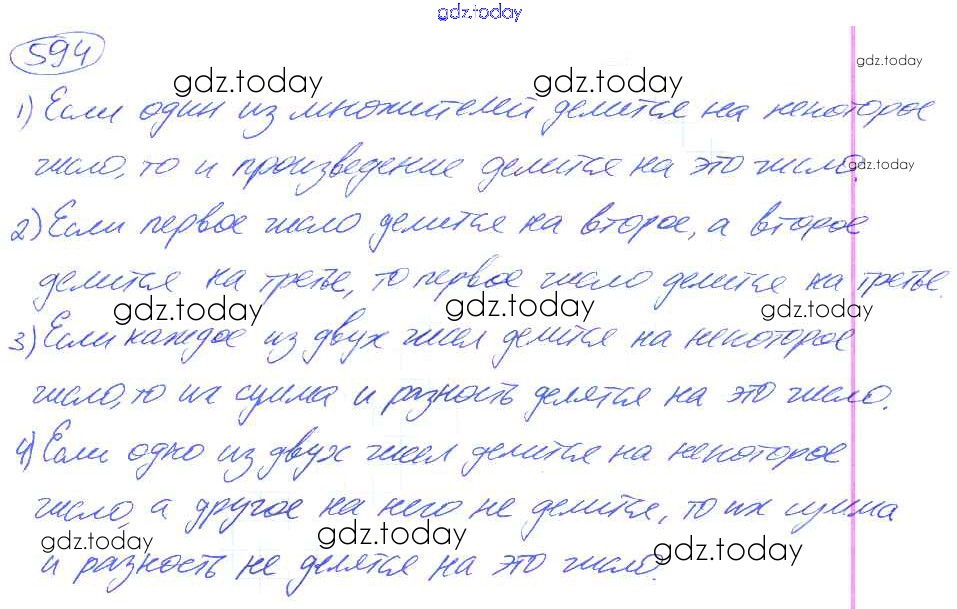 gdz.today
594
gdz.today gdz.today gdz.today
1) Если один из множителей делится на некоторое
число, то и произведение делится на это число.
gdz.today
2) Если первое число делится на второе, а второе
делится на третье, то первое число делится на третье.
gdz.today gdz.today gdz.today
3) Если каждое из двух чисел делится на некоторое
число, то их сумма и разность делятся на это число.
4) Если одно из двух чисел делится на некоторое
число, а другое на него не делится, то их сумма
gdz.today gdz.today gdz.today
и разность не делятся на это число.